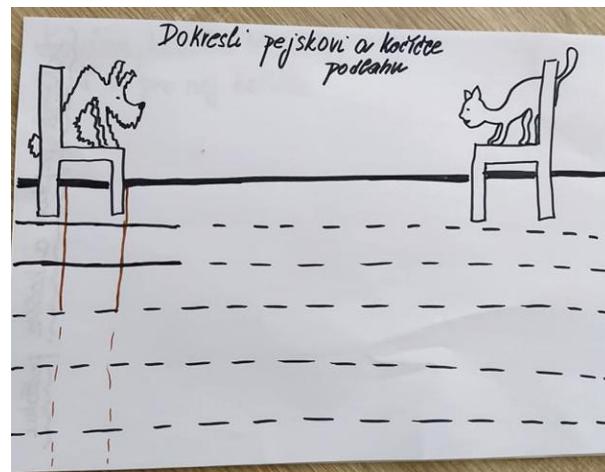 Dokresli pejskovi a kočičce
podlahu